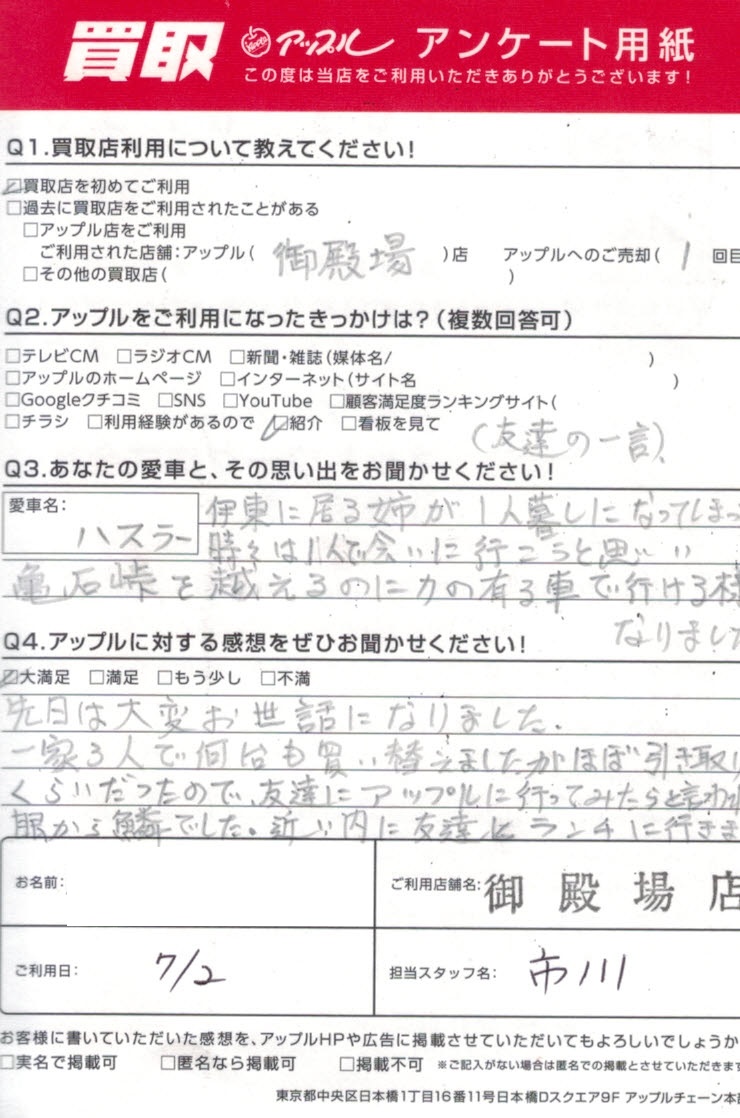 買取 アップル アンケート用紙
この度は当店をご利用いただきありがとうございます!
Q1.買取店利用について教えてください!
☑買取店を初めてご利用
□過去に買取店をご利用されたことがある
□アップル店をご利用
ご利用された店舗:アップル( 御殿場 )店 アップルへのご売却( 1 回目
□その他の買取店( )
Q2.アップルをご利用になったきっかけは?(複数回答可)
□テレビCM □ラジオCM □新聞・雑誌(媒体名/ )
□アップルのホームページ □インターネット(サイト名 )
□Googleクチコミ □SNS □YouTube □顧客満足度ランキングサイト(
□チラシ □利用経験があるので ☑紹介 □看板を見て
(友達の一言)
Q3.あなたの愛車と、その思い出をお聞かせください!
愛車名: ハスラー
伊東に居る姉が1人暮しになってしまっ
時々は1人で会いに行こうと思い
亀石峠を越えるのに力の有る車で行ける様
なりました
Q4.アップルに対する感想をぜひお聞かせください!
☑大満足 □満足 □もう少し □不満
先日は大変お世話になりました.
一家3人で何台も買い替えましたがほぼ引き取り
くらいだったので、友達にアップルに行ってみたらと言われ
眼から鱗でした。近い内に友達とランチに行きま
お名前:
ご利用店舗名: 御殿場店
ご利用日: 7/2
担当スタッフ名: 市川
お客様に書いていただいた感想を、アップルHPや広告に掲載させていただいてもよろしいでしょうか
□実名で掲載可 □匿名なら掲載可 □掲載不可 ※ご記入がない場合は匿名での掲載とさせていただきます
東京都中央区日本橋1丁目16番11号日本橋Dスクエア9F アップルチェーン本